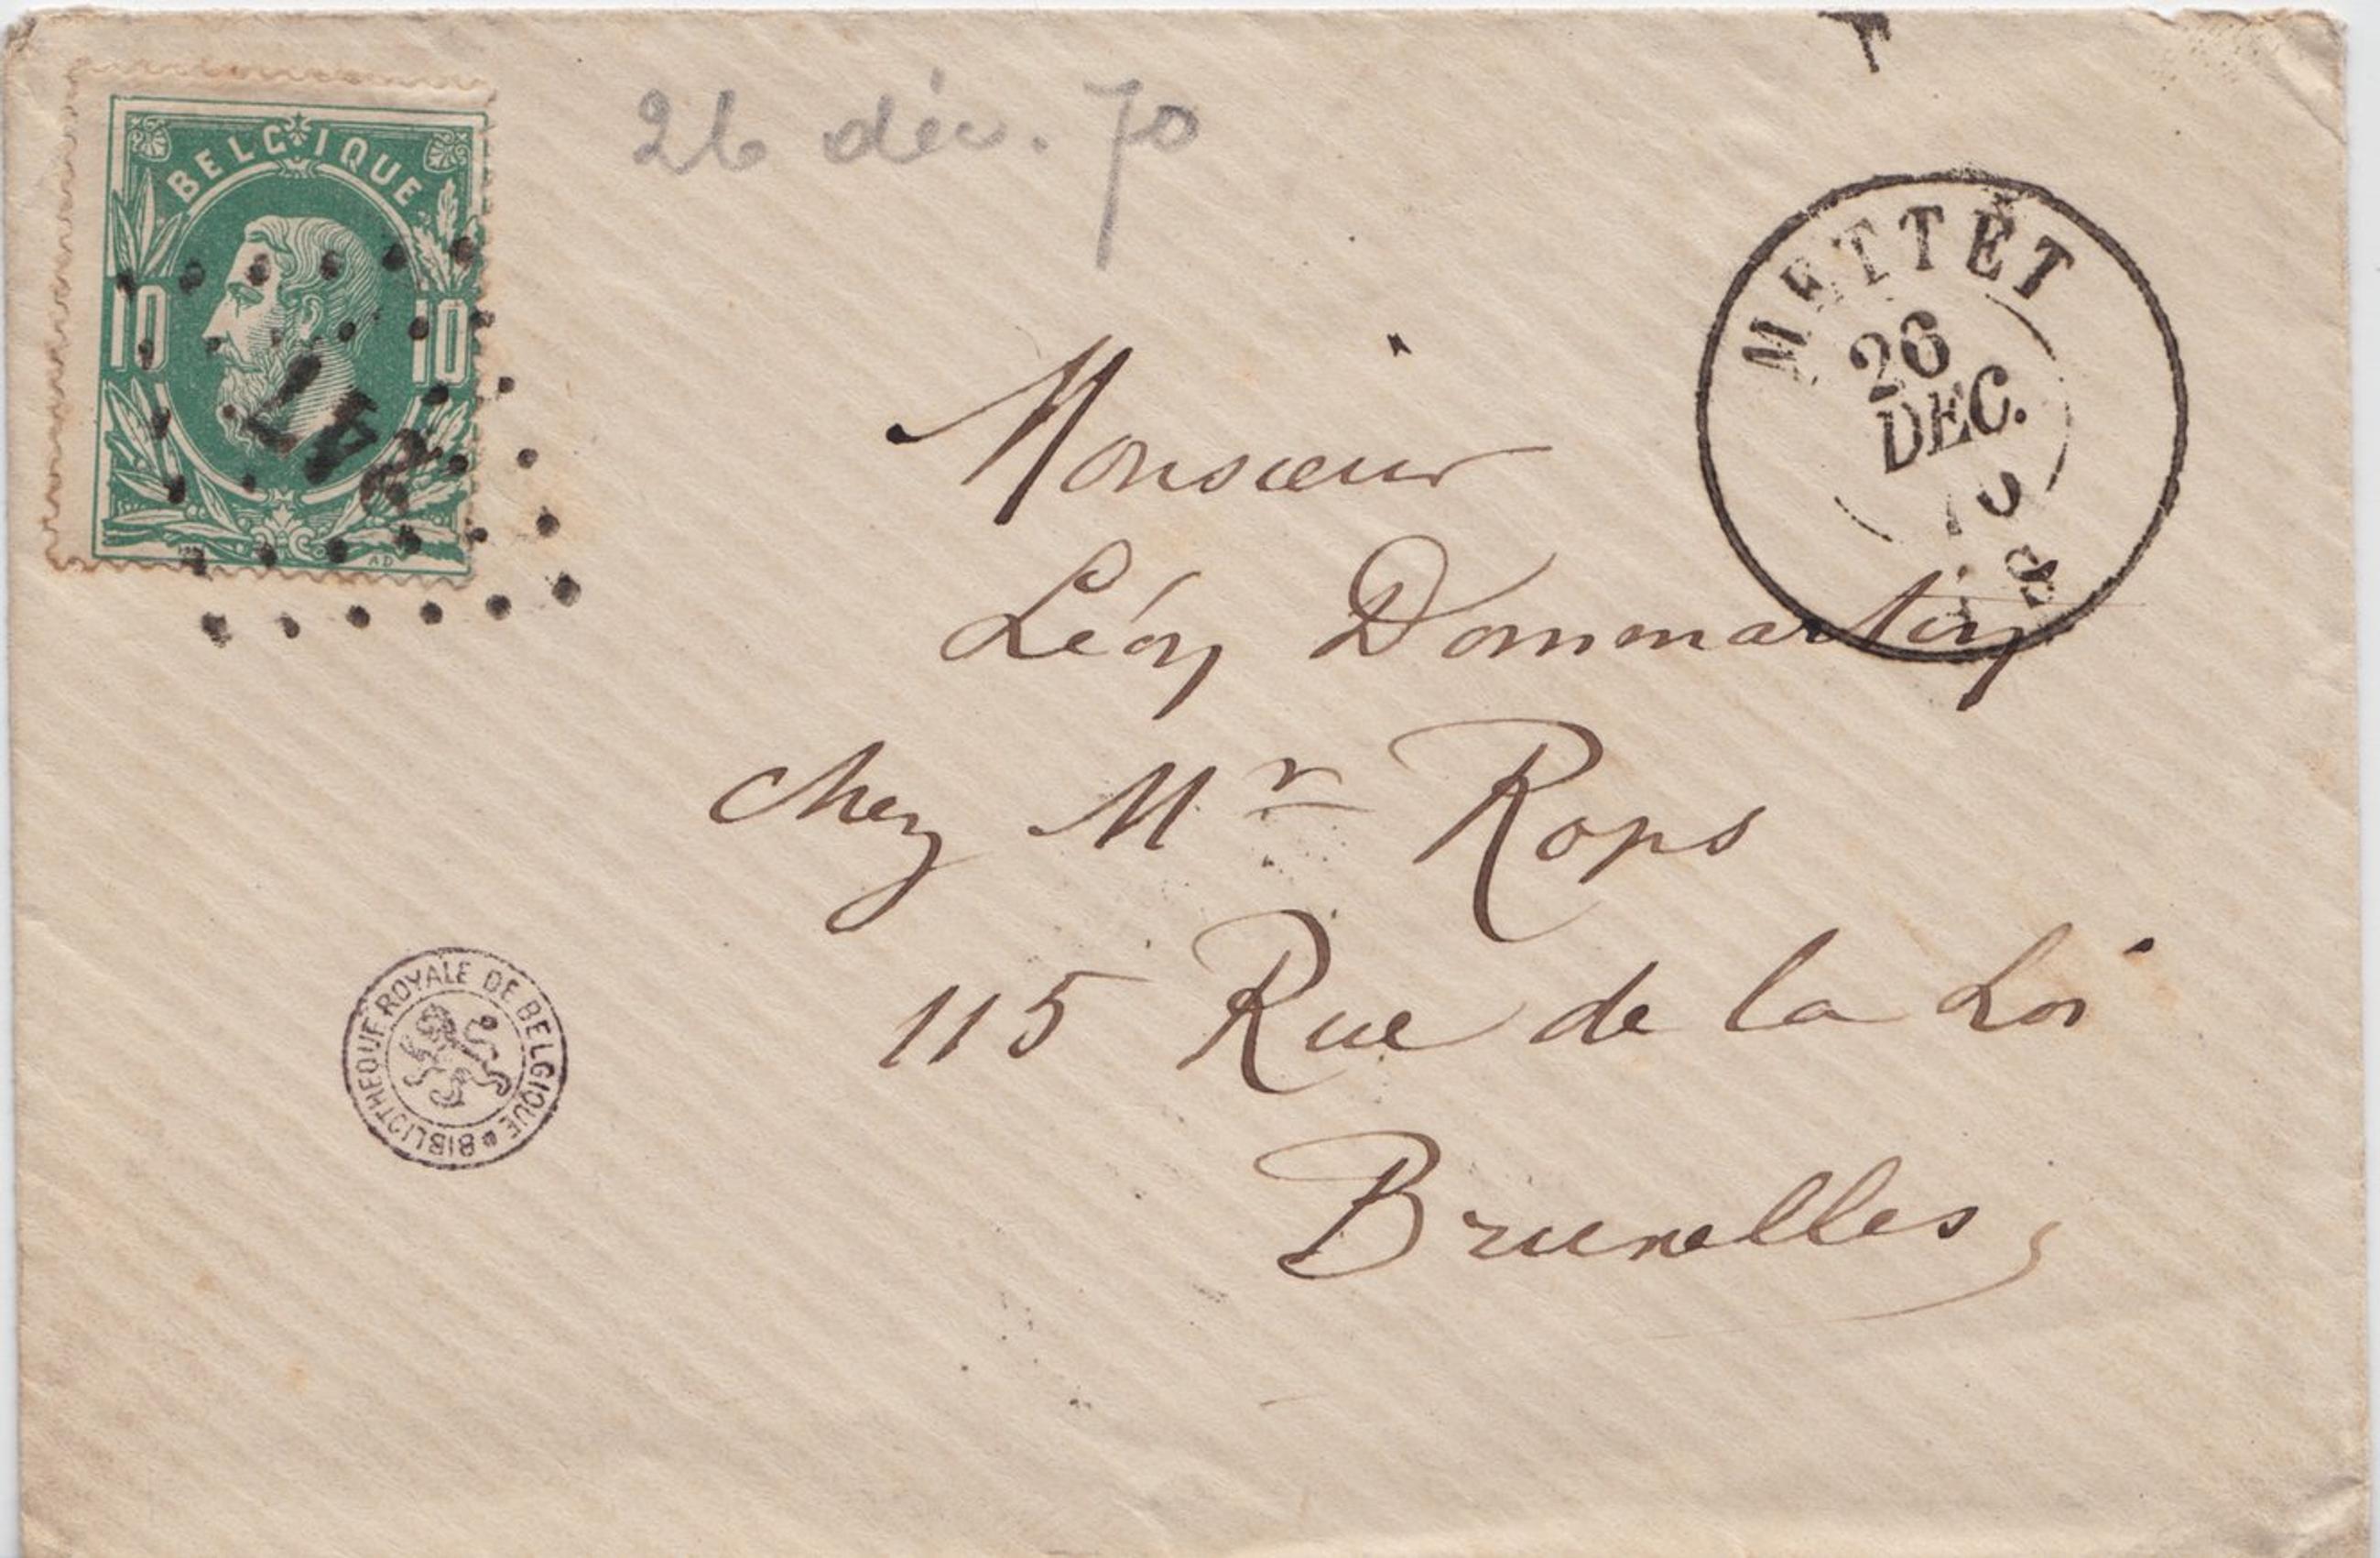 26 déc. 70
BELGIQUE
10 10
247
METTET
26
DEC.
Monsieur
Léon Dommartin
chez Mr Rops
115 Rue de la Loi
Bruxelles
BIBLIOTHEQUE ROYALE DE BELGIQUE